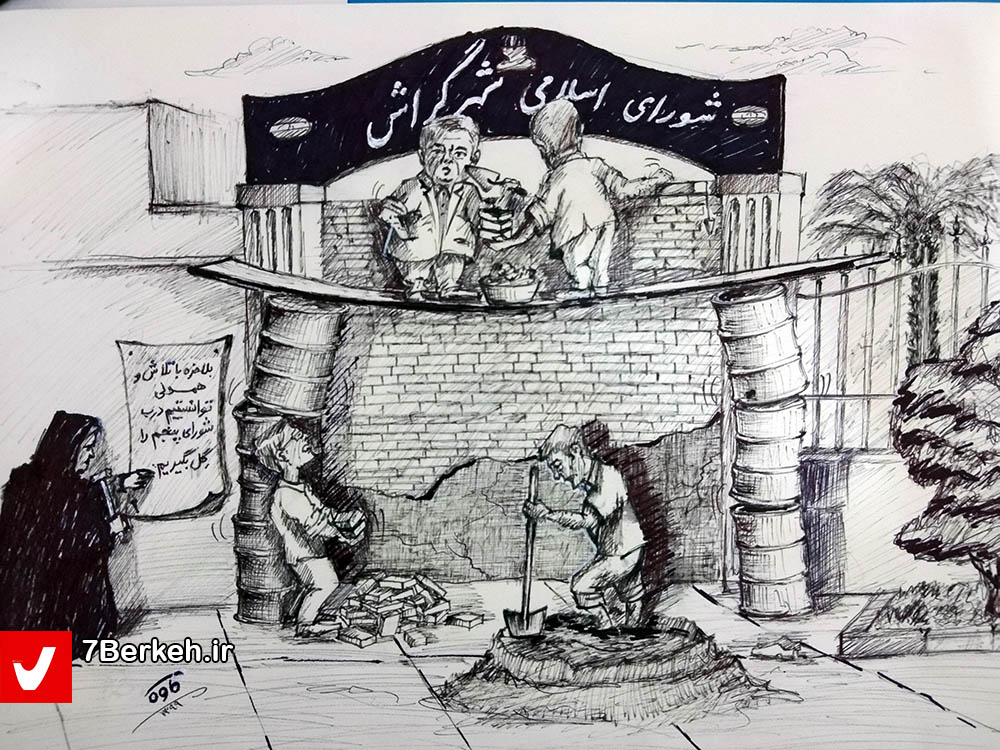 شورای اسلامی شهر گراش
بلاخره با تلاش و
همدلی
توانستیم درب
شورای پنجم را
گل بگیریم!
7Berkeh.ir
کاوه
۱۳۹۹